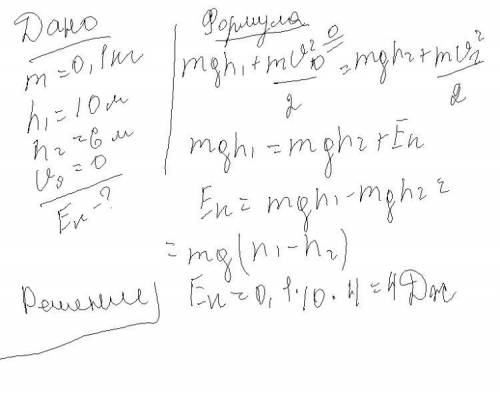 Дано
m = 0,1 кг
h₁ = 10 м
h₂ = 6 м
υ₀ = 0
Eк - ?
Формула
mgh₁ + mυ₀²/2 = mgh₂ + mυ₂²/2
0
mgh₁ = mgh₂ + Eк
Eк = mgh₁ - mgh₂ =
= mg(h₁ - h₂)
Решение
Eк = 0,1·10·4 = 4 Дж